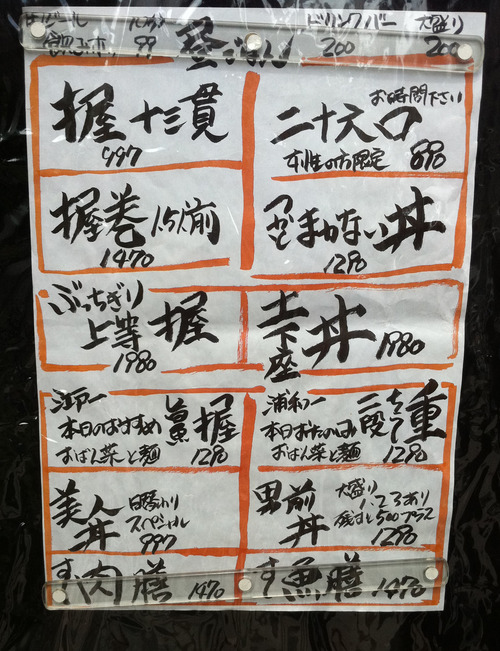 ドリンクバー 大盛り
99 200 200
昼ごはん
握十三貫
997
お時間下さい
二十六
女性の方限定
握巻1.5人前
1470
まかない丼
1290
ぶっちぎり
上等 握
1980
土下座 丼 1980
江戸一
本日のおすすめ
握
おばん菜と麺 1290
浦和一
本日おたのしみ
二段 重
おばん菜と麺 1290
美人丼
日替わり
スペシャル
997
男前丼
大盛り
1.2.3あり
残すと500プラス
1290
肉膳 1470
魚膳 1470